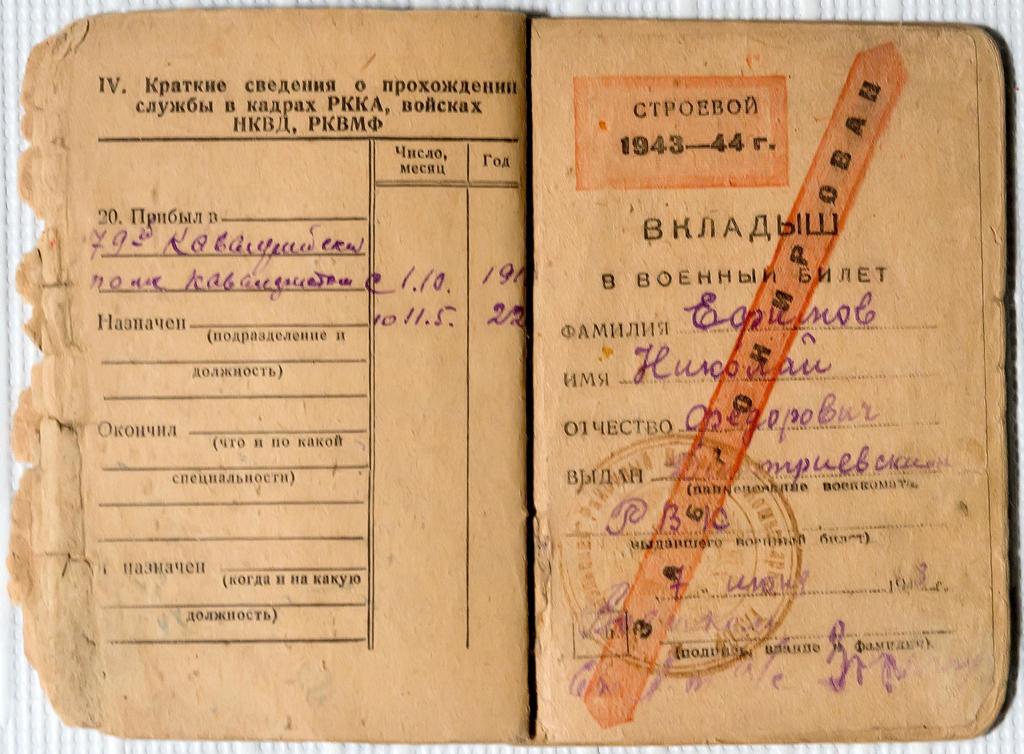 IV. Краткие сведения о прохождении
службы в кадрах РККА, войсках
НКВД, РКВМФ
Число, месяц
Год
20. Прибыл в
79й Кавалерийский
полк кавалеристом с 1.10. 191
Назначен по 11.5. 22
(подразделение и
должность)
Окончил
(что и по какой
специальности)
и назначен
(когда и на какую
должность)
СТРОЕВОЙ
1943—44 г.
ЗАБРОНИРОВАН
ВКЛАДЫШ
В ВОЕННЫЙ БИЛЕТ
ФАМИЛИЯ Ефимов
ИМЯ Николай
ОТЧЕСТВО Федорович
ВЫДАН
(наименование военкомата,
РВК
выдавшего военный билет)
7 июня 194 г.
(подпись, звание и фамилия).